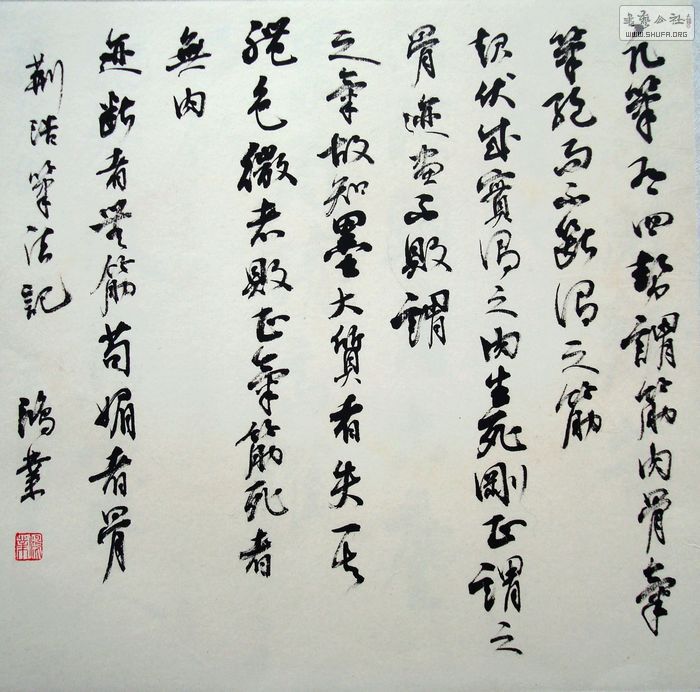 凡筆有四勢謂筋肉骨氣
筆絕而不斷謂之筋
起伏成實謂之肉生死剛正謂之
骨迹畫不敗謂
之氣故知墨大質者失其
體色微者敗正氣筋死者
無肉
迹斷者無筋苟媚者骨
荆浩筆法記 鴻業
书艺公社
WWW.SHUFA.ORG